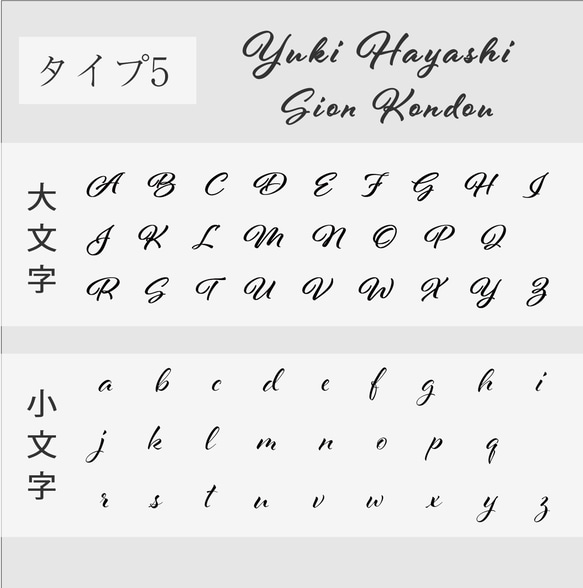 タイプ5
Yuki Hayashi
Sion Kondou
大文字
A B C D E F G H I
J K L M N O P Q
R S T U V W X Y Z
小文字
a b c d e f g h i
j k l m n o p q
r s t u v w x y z